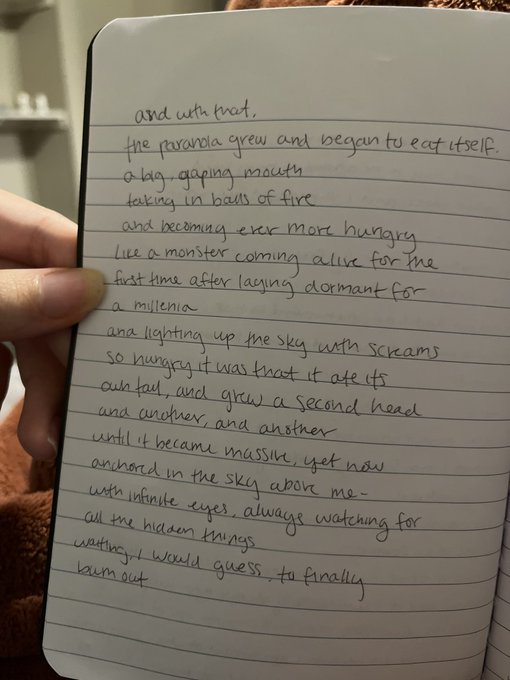 and with that,
the paranoia grew and began to eat itself.
a big, gaping mouth
taking in balls of fire
and becoming ever more hungry
like a monster coming alive for the
first time after laying dormant for
a millenia
and lighting up the sky with screams
so hungry it was that it ate its
own tail, and grew a second head
and another, and another
until it became massive, yet now
anchored in the sky above me-
with infinite eyes, always watching for
all the hidden things
waiting, I would guess, to finally
burn out